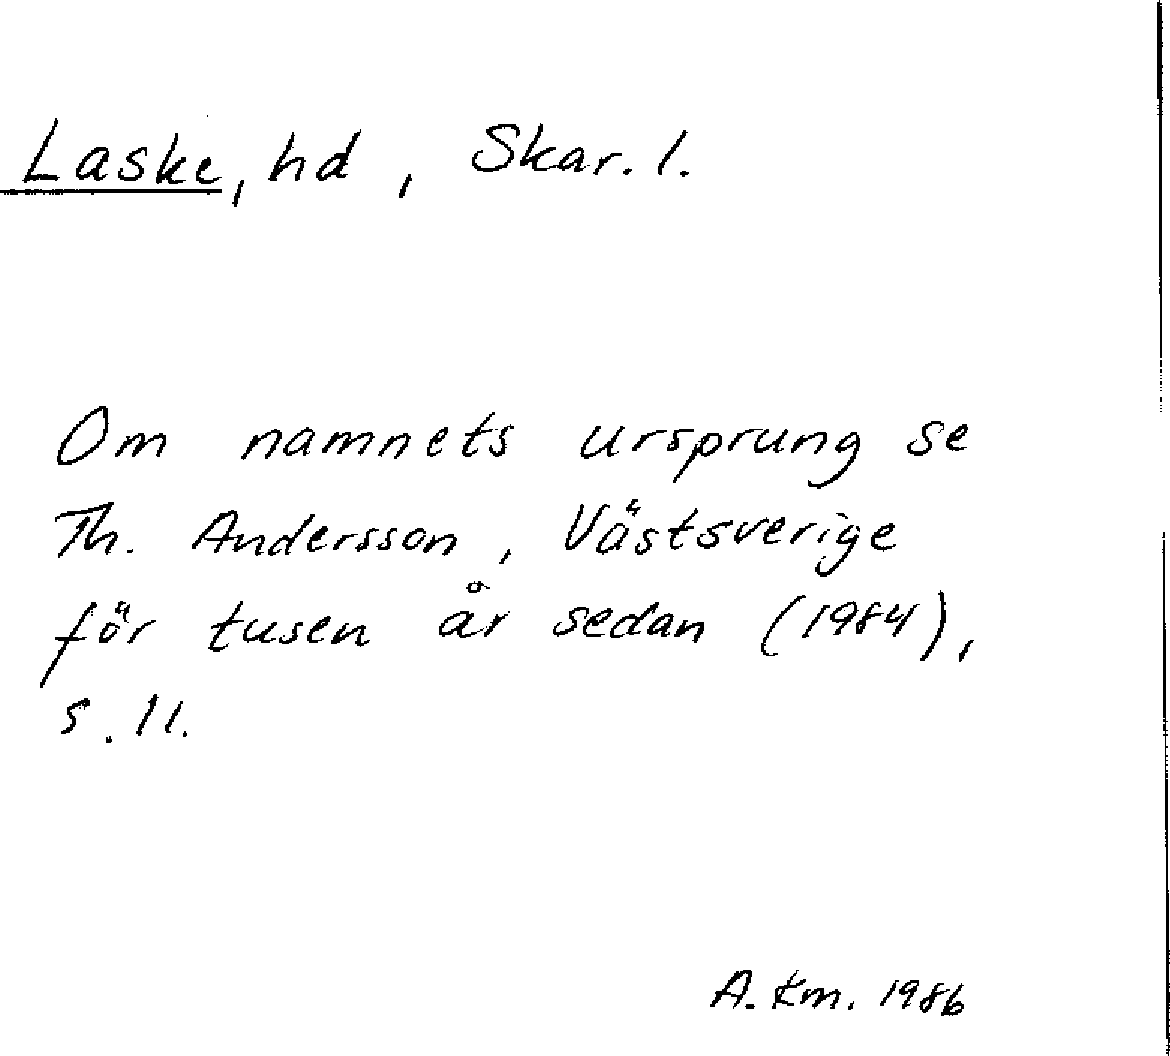 Laske, hd, Skar. l.
Om namnets ursprung se
Th. Andersson, Västsverige
för tusen år sedan (1984),
s. 11.
A. Km. 1986